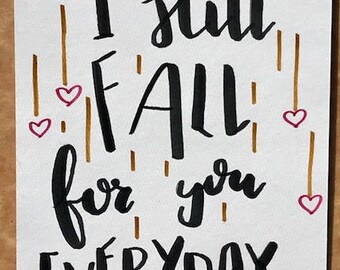 I still
FALL
for you
EVERYDAY